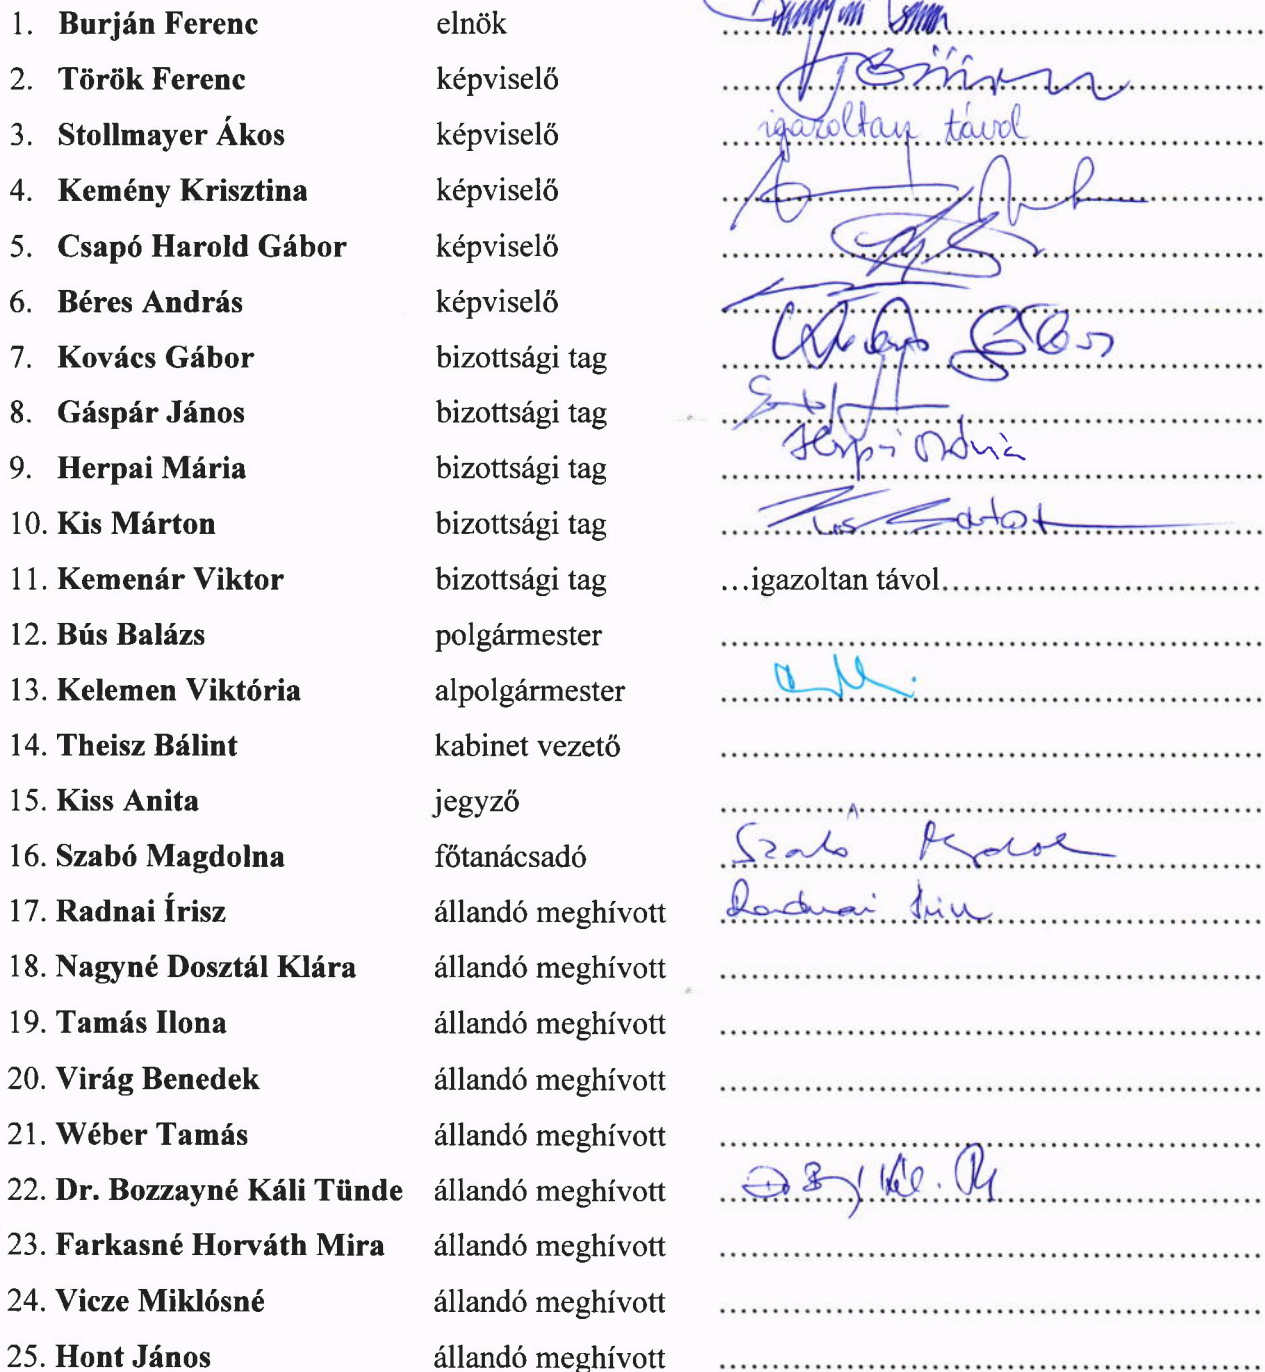 1. Burján Ferenc elnök ........................................
2. Török Ferenc képviselő ........................................
3. Stollmayer Ákos képviselő igazoltan távol
4. Kemény Krisztina képviselő ........................................
5. Csapó Harold Gábor képviselő ........................................
6. Béres András képviselő ........................................
7. Kovács Gábor bizottsági tag Kovács Gábor
8. Gáspár János bizottsági tag ........................................
9. Herpai Mária bizottsági tag Herpai Mária
10. Kis Márton bizottsági tag Kis Márton
11. Kemenár Viktor bizottsági tag ...igazoltan távol........................................
12. Bús Balázs polgármester ........................................
13. Kelemen Viktória alpolgármester ........................................
14. Theisz Bálint kabinet vezető ........................................
15. Kiss Anita jegyző ........................................
16. Szabó Magdolna főtanácsadó Szabó Magdolna
17. Radnai Írisz állandó meghívott Radnai Írisz
18. Nagyné Dosztál Klára állandó meghívott ........................................
19. Tamás Ilona állandó meghívott ........................................
20. Virág Benedek állandó meghívott ........................................
21. Wéber Tamás állandó meghívott ........................................
22. Dr. Bozzayné Káli Tünde állandó meghívott ........................................
23. Farkasné Horváth Mira állandó meghívott ........................................
24. Vicze Miklósné állandó meghívott ........................................
25. Hont János állandó meghívott ........................................